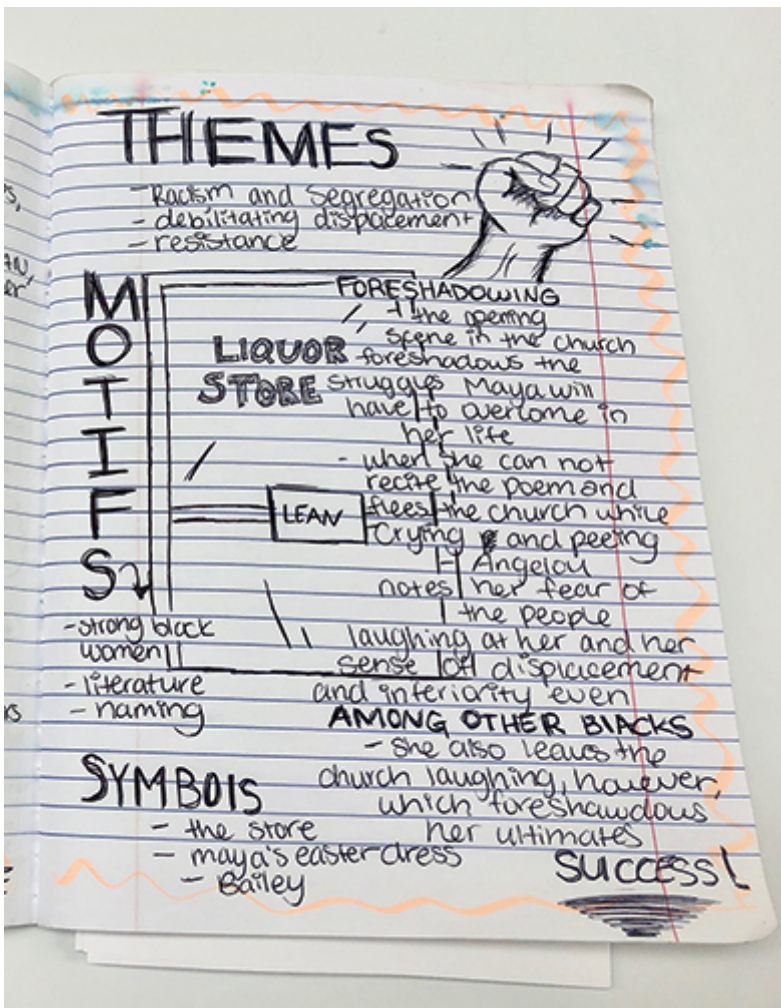 THEMES
- Racism and Segregation
- debilitating displacement
- resistance
MOTIFS
- strong black
women
- literature
- naming
LIQUOR
STORE
LEAN
FORESHADOWING
the opening
scene in the church
foreshadows the
struggles Maya will
have to overcome in
her life
- when she can not
recite the poem and
flees the church while
crying and peeing
Angelou
notes her fear of
the people
laughing at her and her
sense of displacement
and inferiority even
AMONG OTHER BlACKS
- She also leaves the
church laughing, however,
which foreshawdous
her ultimates
SUCCESS!
SYMBOlS
- the store
- maya's easter dress
- Bailey